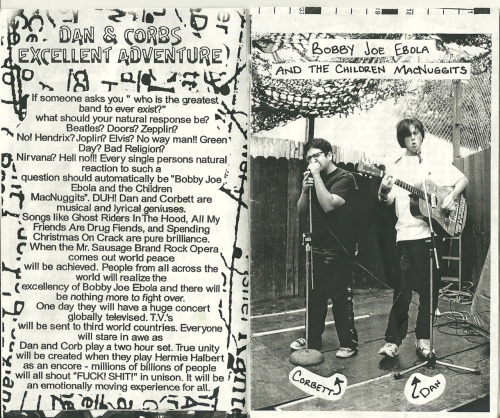 DAN & CORBS
EXCELLENT ADVENTURE
If someone asks you " who is the greatest
band to ever exist?"
what should your natural response be?
Beatles? Doors? Zepplin?
No! Hendrix?Joplin? Elvis? No way man!! Green
Day? Bad Religion?
Nirvana? Hell no!!! Every single persons natural
reaction to such a
question should automatically be "Bobby Joe
Ebola and the Children
MacNuggits". DUH! Dan and Corbett are
musical and lyrical geniuses.
Songs like Ghost Riders In The Hood, All My
Friends Are Drug Fiends, and Spending
Christmas On Crack are pure brilliance.
When the Mr. Sausage Brand Rock Opera
comes out world peace
will be achieved. People from all across the
world will realize the
excellency of Bobby Joe Ebola and there will
be nothing more to fight over.
One day they will have a huge concert
globally televised. T.V.'s
will be sent to third world countries. Everyone
will stare in awe as
Dan and Corb play a two hour set. True unity
will be created when they play Hermie Halbert
as an encore - millions of billions of people
will all shout "FUCK! SHIT!" in unison. It will be
an emotionally moving experience for all.
BOBBY JOE EBOLA
AND THE CHILDREN MACNUGGITS
CORBETT
DAN